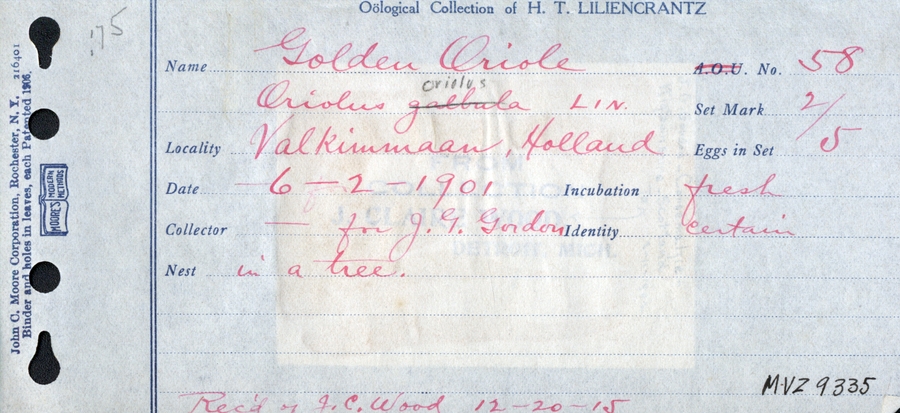 Oölogical Collection of H. T. LILIENCRANTZ
175
Name Golden Oriole A.O.U. No. 58
oriolus
Oriolus galbula LIN. Set Mark 2/5
Locality Valkimmaan, Holland Eggs in Set 5
Date 6-2-1901 Incubation fresh
Collector — for J. G. Gordon Identity certain
Nest in a tree.
MVZ 9335
Rec'd of J. C. Wood 12-20-15
John C. Moore Corporation, Rochester, N. Y. 216401
Binder and holes in leaves, each Patented 1906.
MOORE'S MODERN METHODS